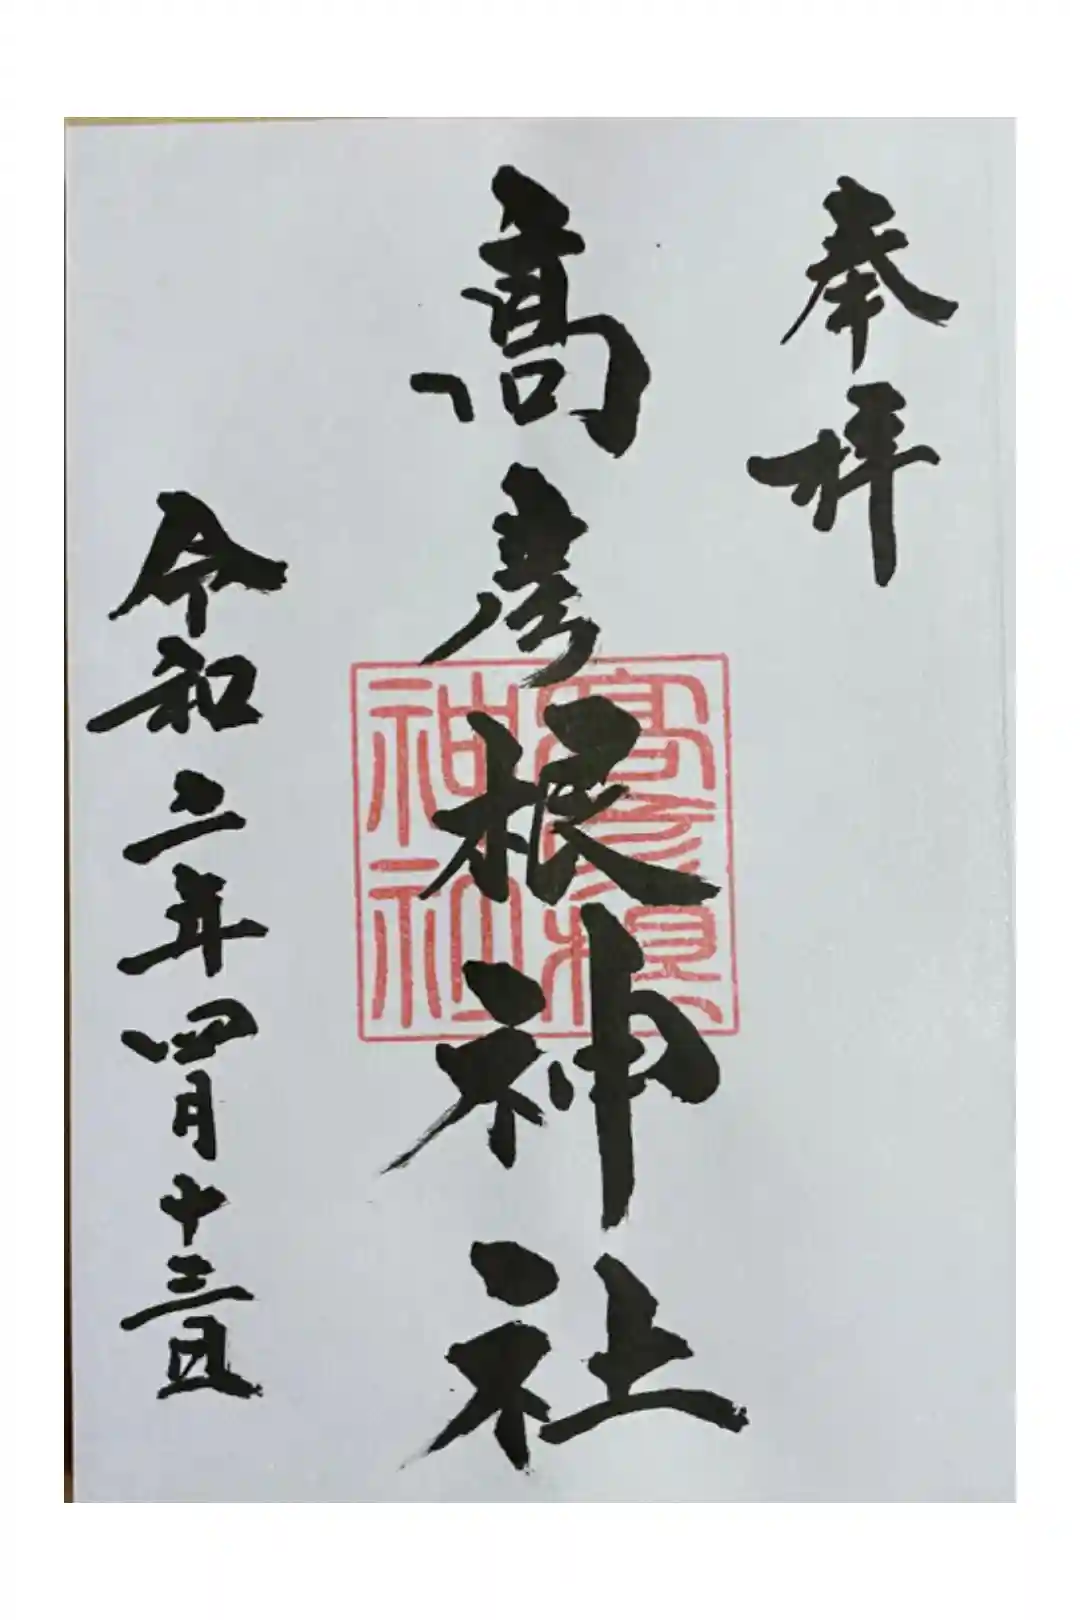 奉拝
高彦根神社
高彦根神社
令和二年四月十三日